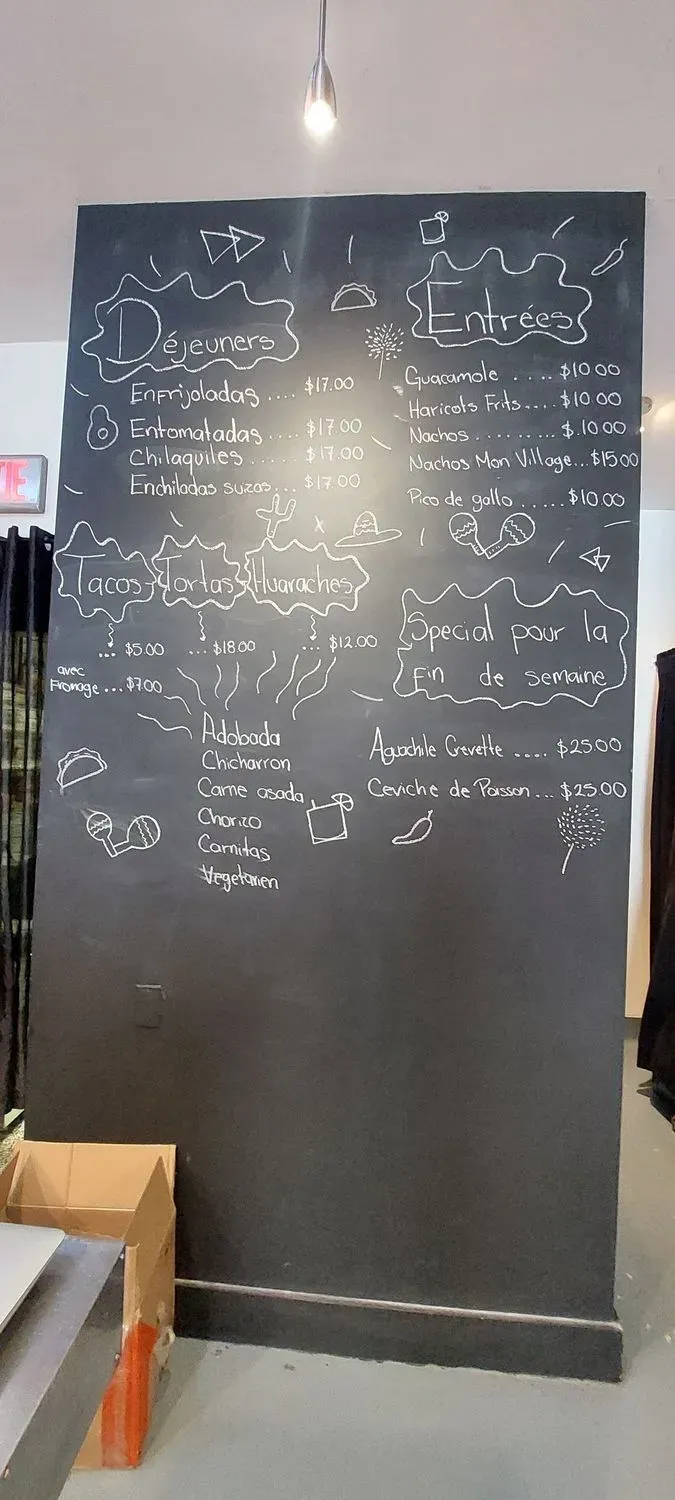 Déjeuners
Enfrijoladas .... $17.00
Entomatadas .... $17.00
Chilaquiles ...... $17.00
Enchiladas suzas... $17.00
Entrées
Guacamole .... $10.00
Haricots Frits.... $10.00
Nachos ......... $.10.00
Nachos Mon Village... $15.00
Pico de gallo ...... $10.00
TIE
Tacos Tortas Huaraches
... $5.00 ... $18.00 ... $12.00
avec
Fromage ... $7.00
Adobada
Chicharron
Carne asada
Chorizo
Carnitas
Vegetarien
Special pour la
Fin de semaine
Aguachile Crevette .... $25.00
Ceviche de Poisson... $25.00